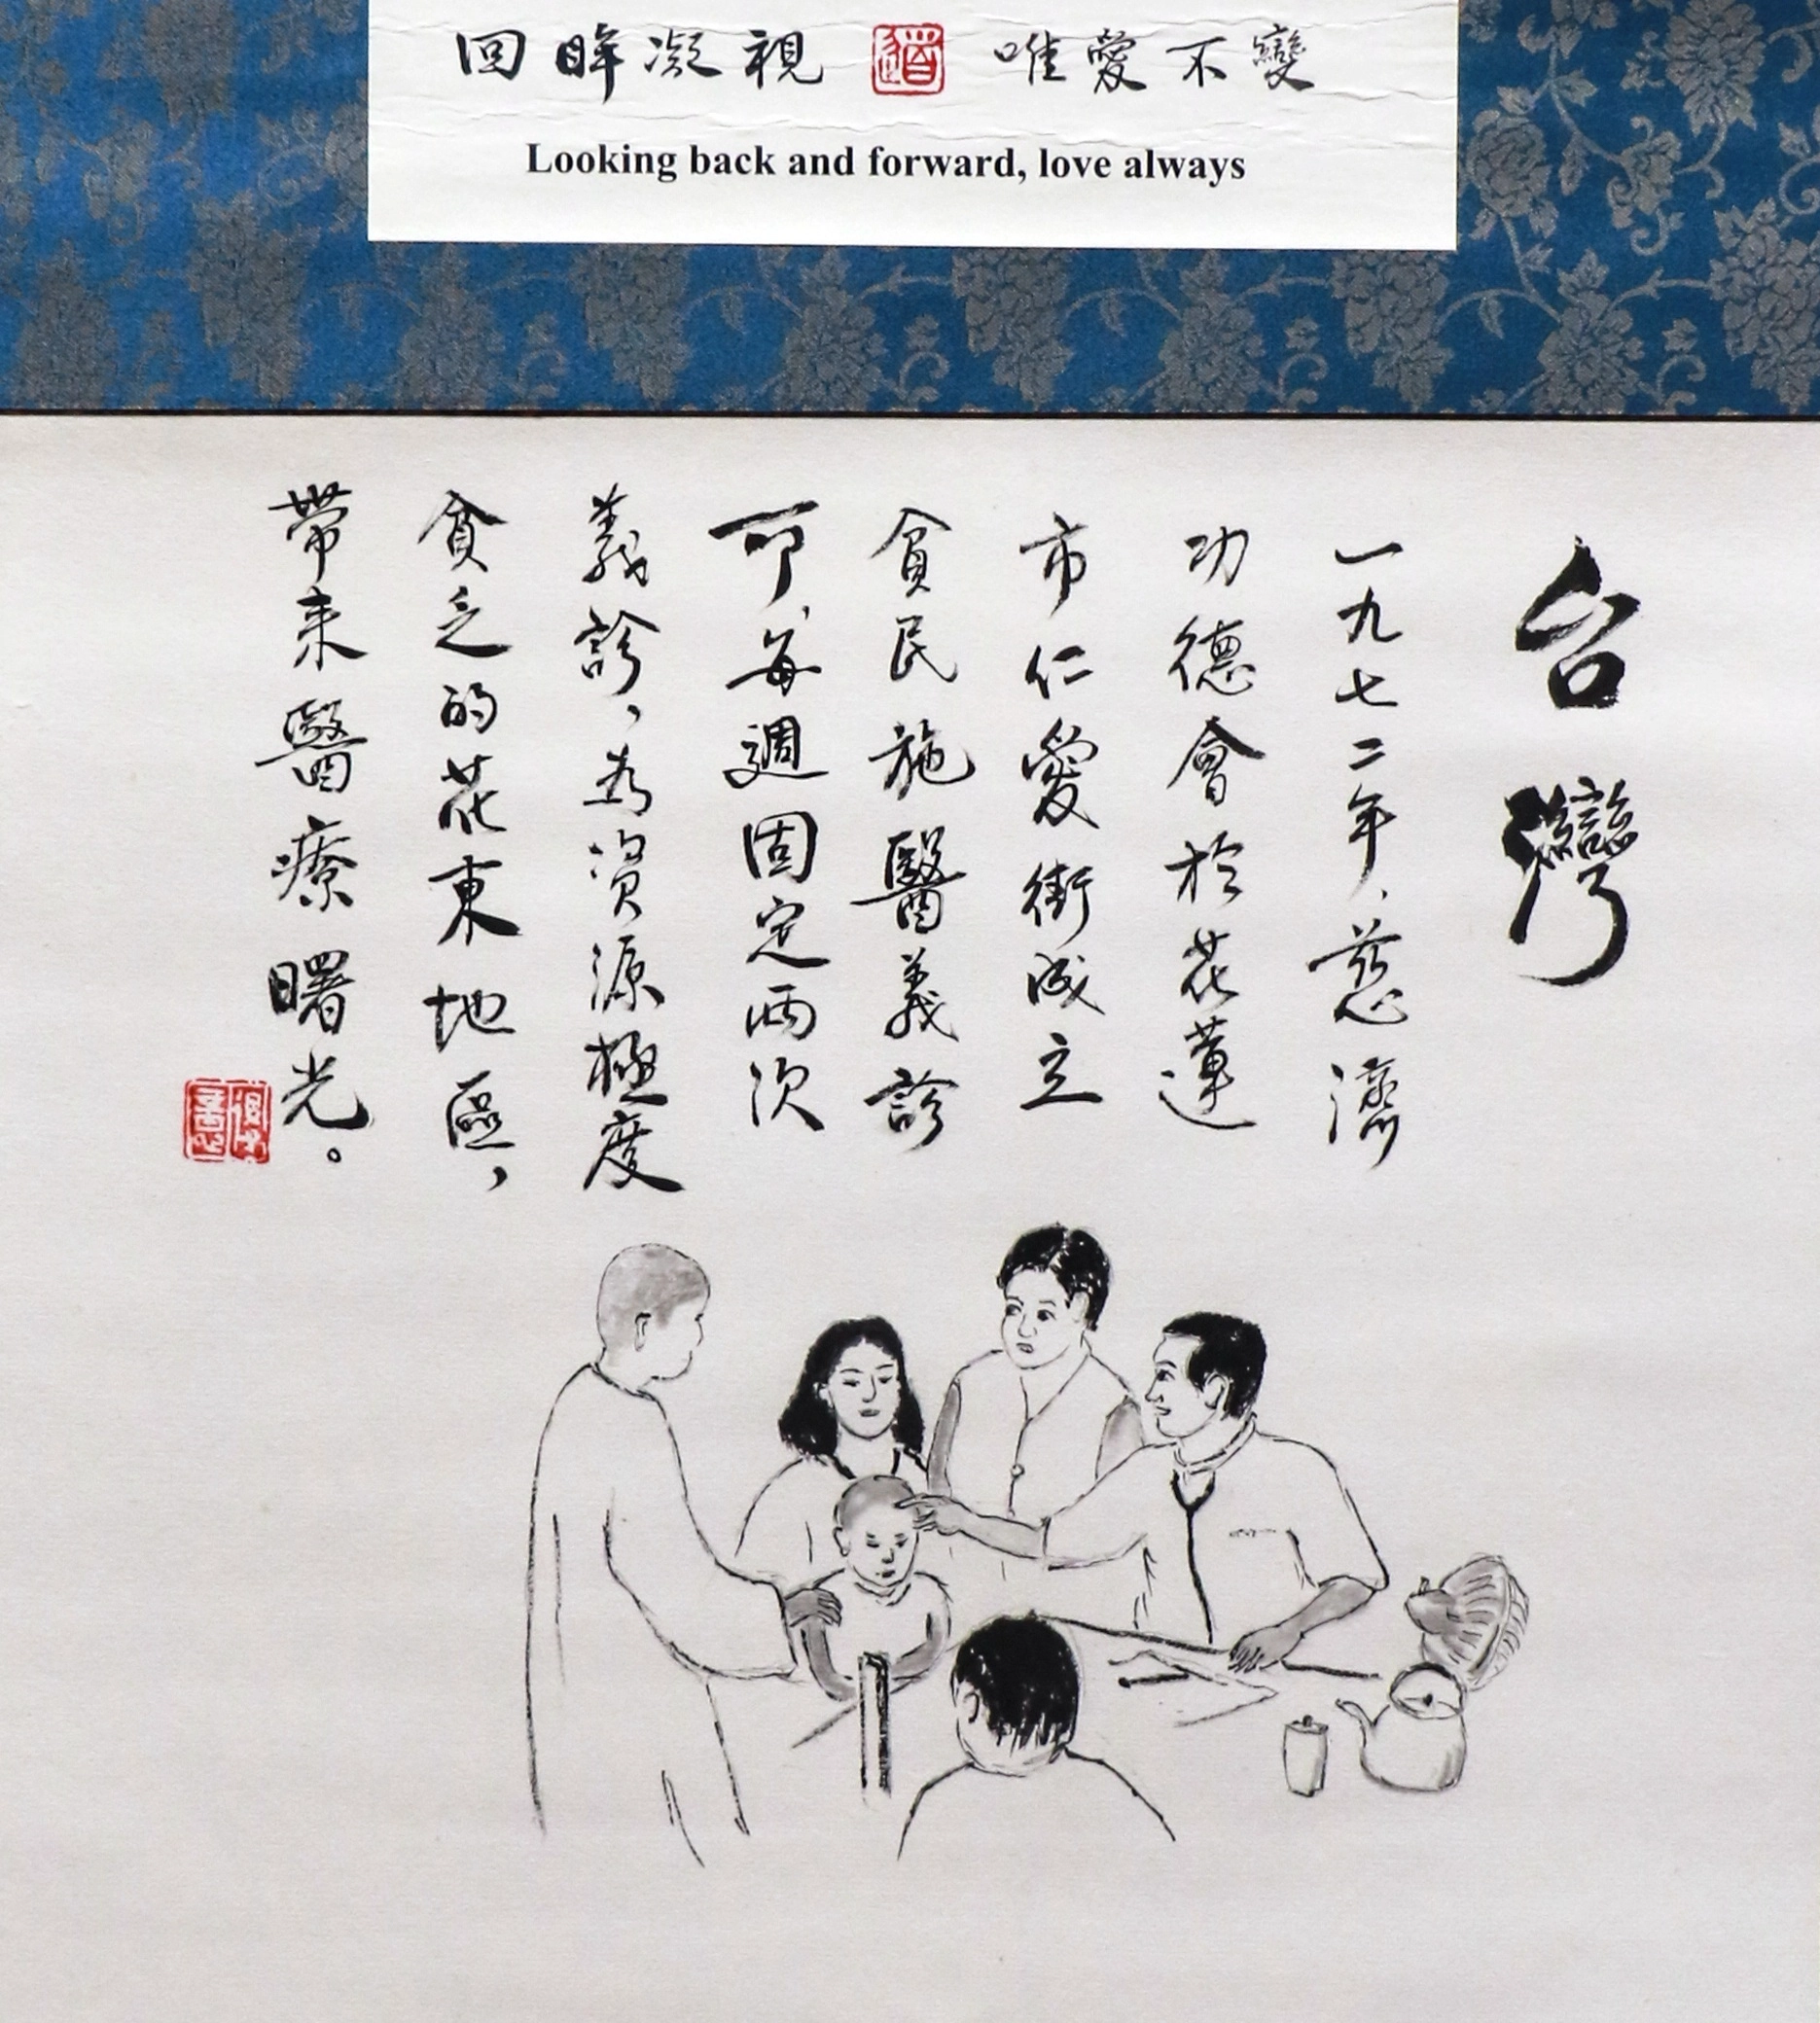 回眸凝視 道 唯愛不變
Looking back and forward, love always
台灣
一九七二年,慈濟
功德會於花蓮
市仁愛街成立
貧民施醫義診
所,每週固定兩次
義診,為資源極度
貧乏的花東地區,
帶來醫療曙光。